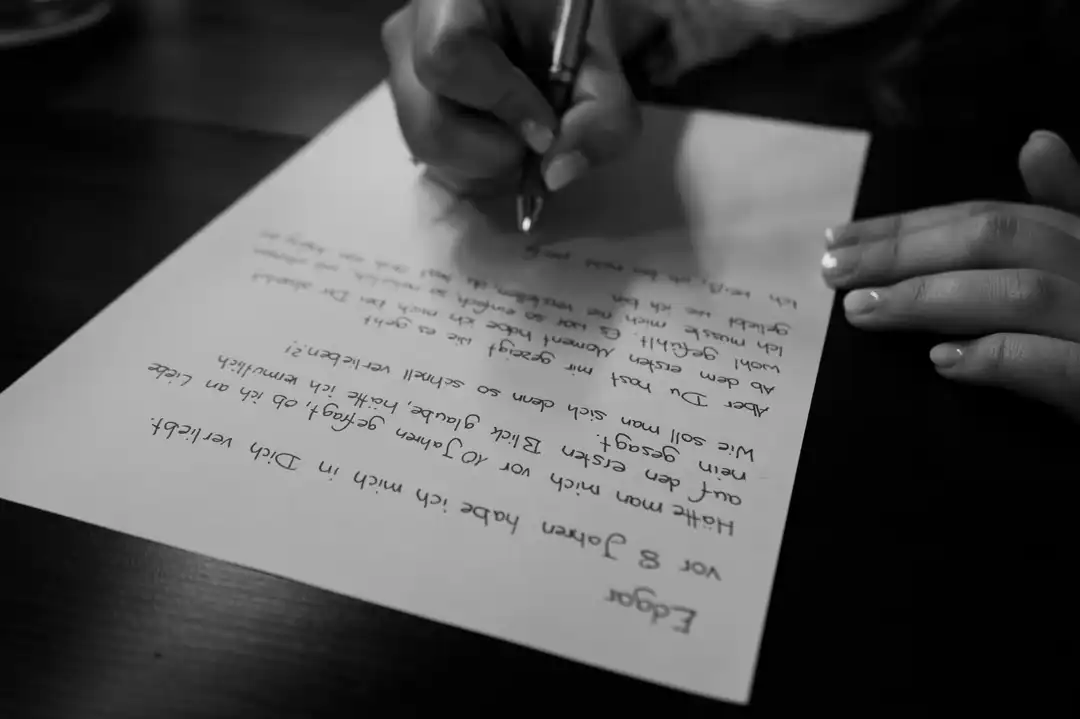 Edgar
vor 8 Jahren habe ich mich in Dich verliebt.
Hätte man mich vor 10 Jahren gefragt, ob ich an Liebe
auf den ersten Blick glaube, hätte ich vermutlich
nein gesagt.
Wie soll man sich denn so schnell verlieben?!
Aber Du hast mir gezeigt wie es geht.
Ab dem ersten Moment habe ich mich bei Dir absolut
wohl gefühlt. Es war so einfach, so natürlich und
Ich musste mich nie verstellen, du hast mich von Anfang an
geliebt wie ich bin.
Ich weiß, ich bin nicht